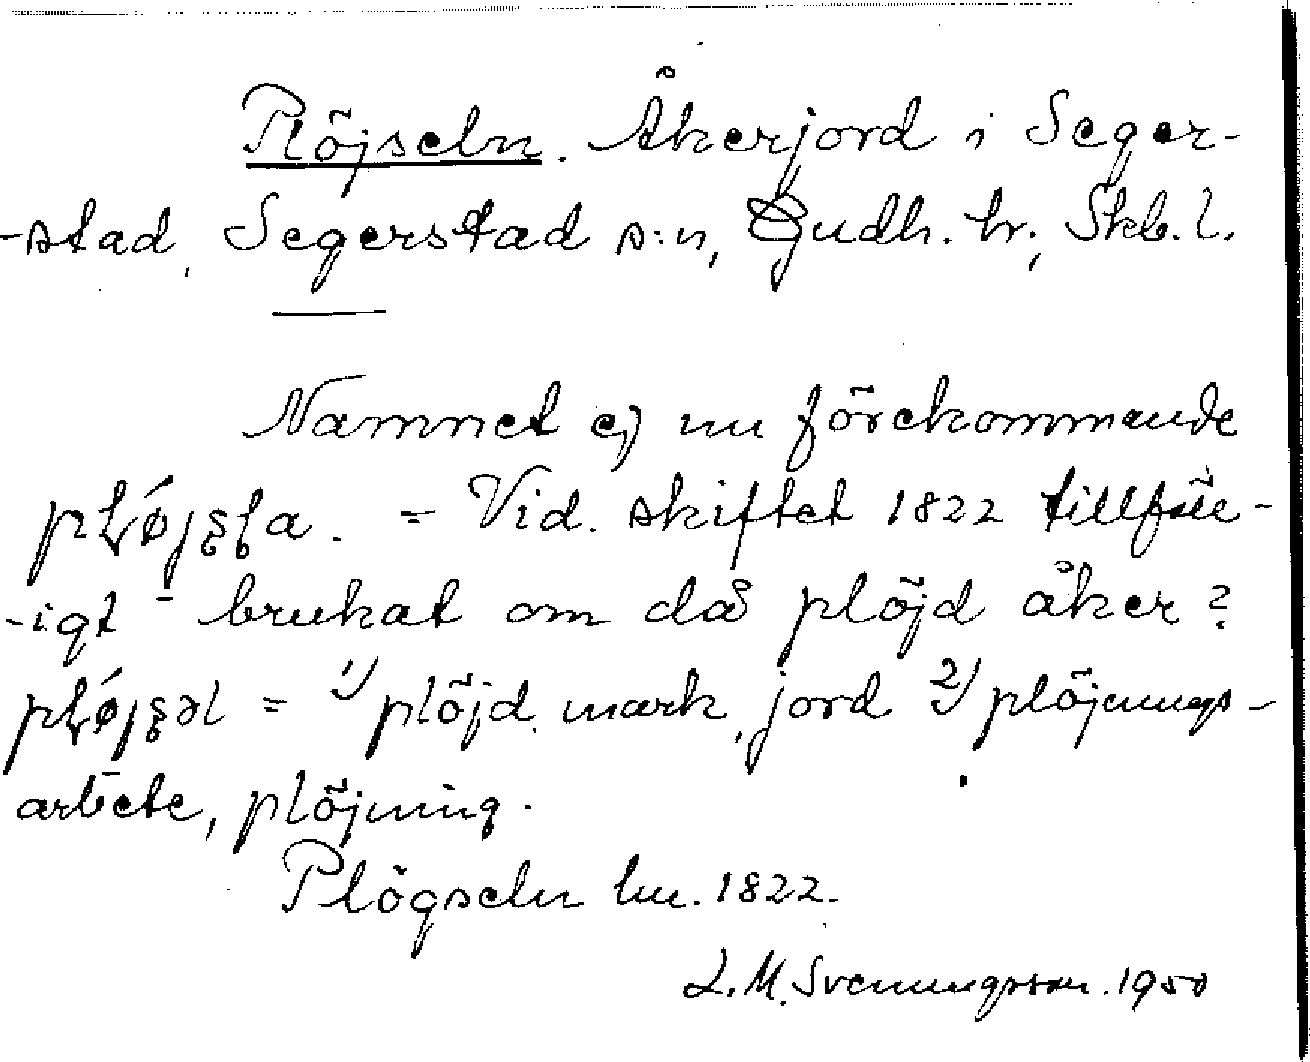 Plöjseln. Åkerjord i Seger-
-stad, Segerstad s:n, Gudh. hr; Skb. l.
Namnet ej nu förekommande
= Vid. skiftet 1822 tillfäll-
-igt - brukat om då plöjd åker?
= 1) plöjd mark, jord 2) plöjnings-
arbete, plöjning.
Plögseln lm. 1822.
L.M. Svenungsson. 1950